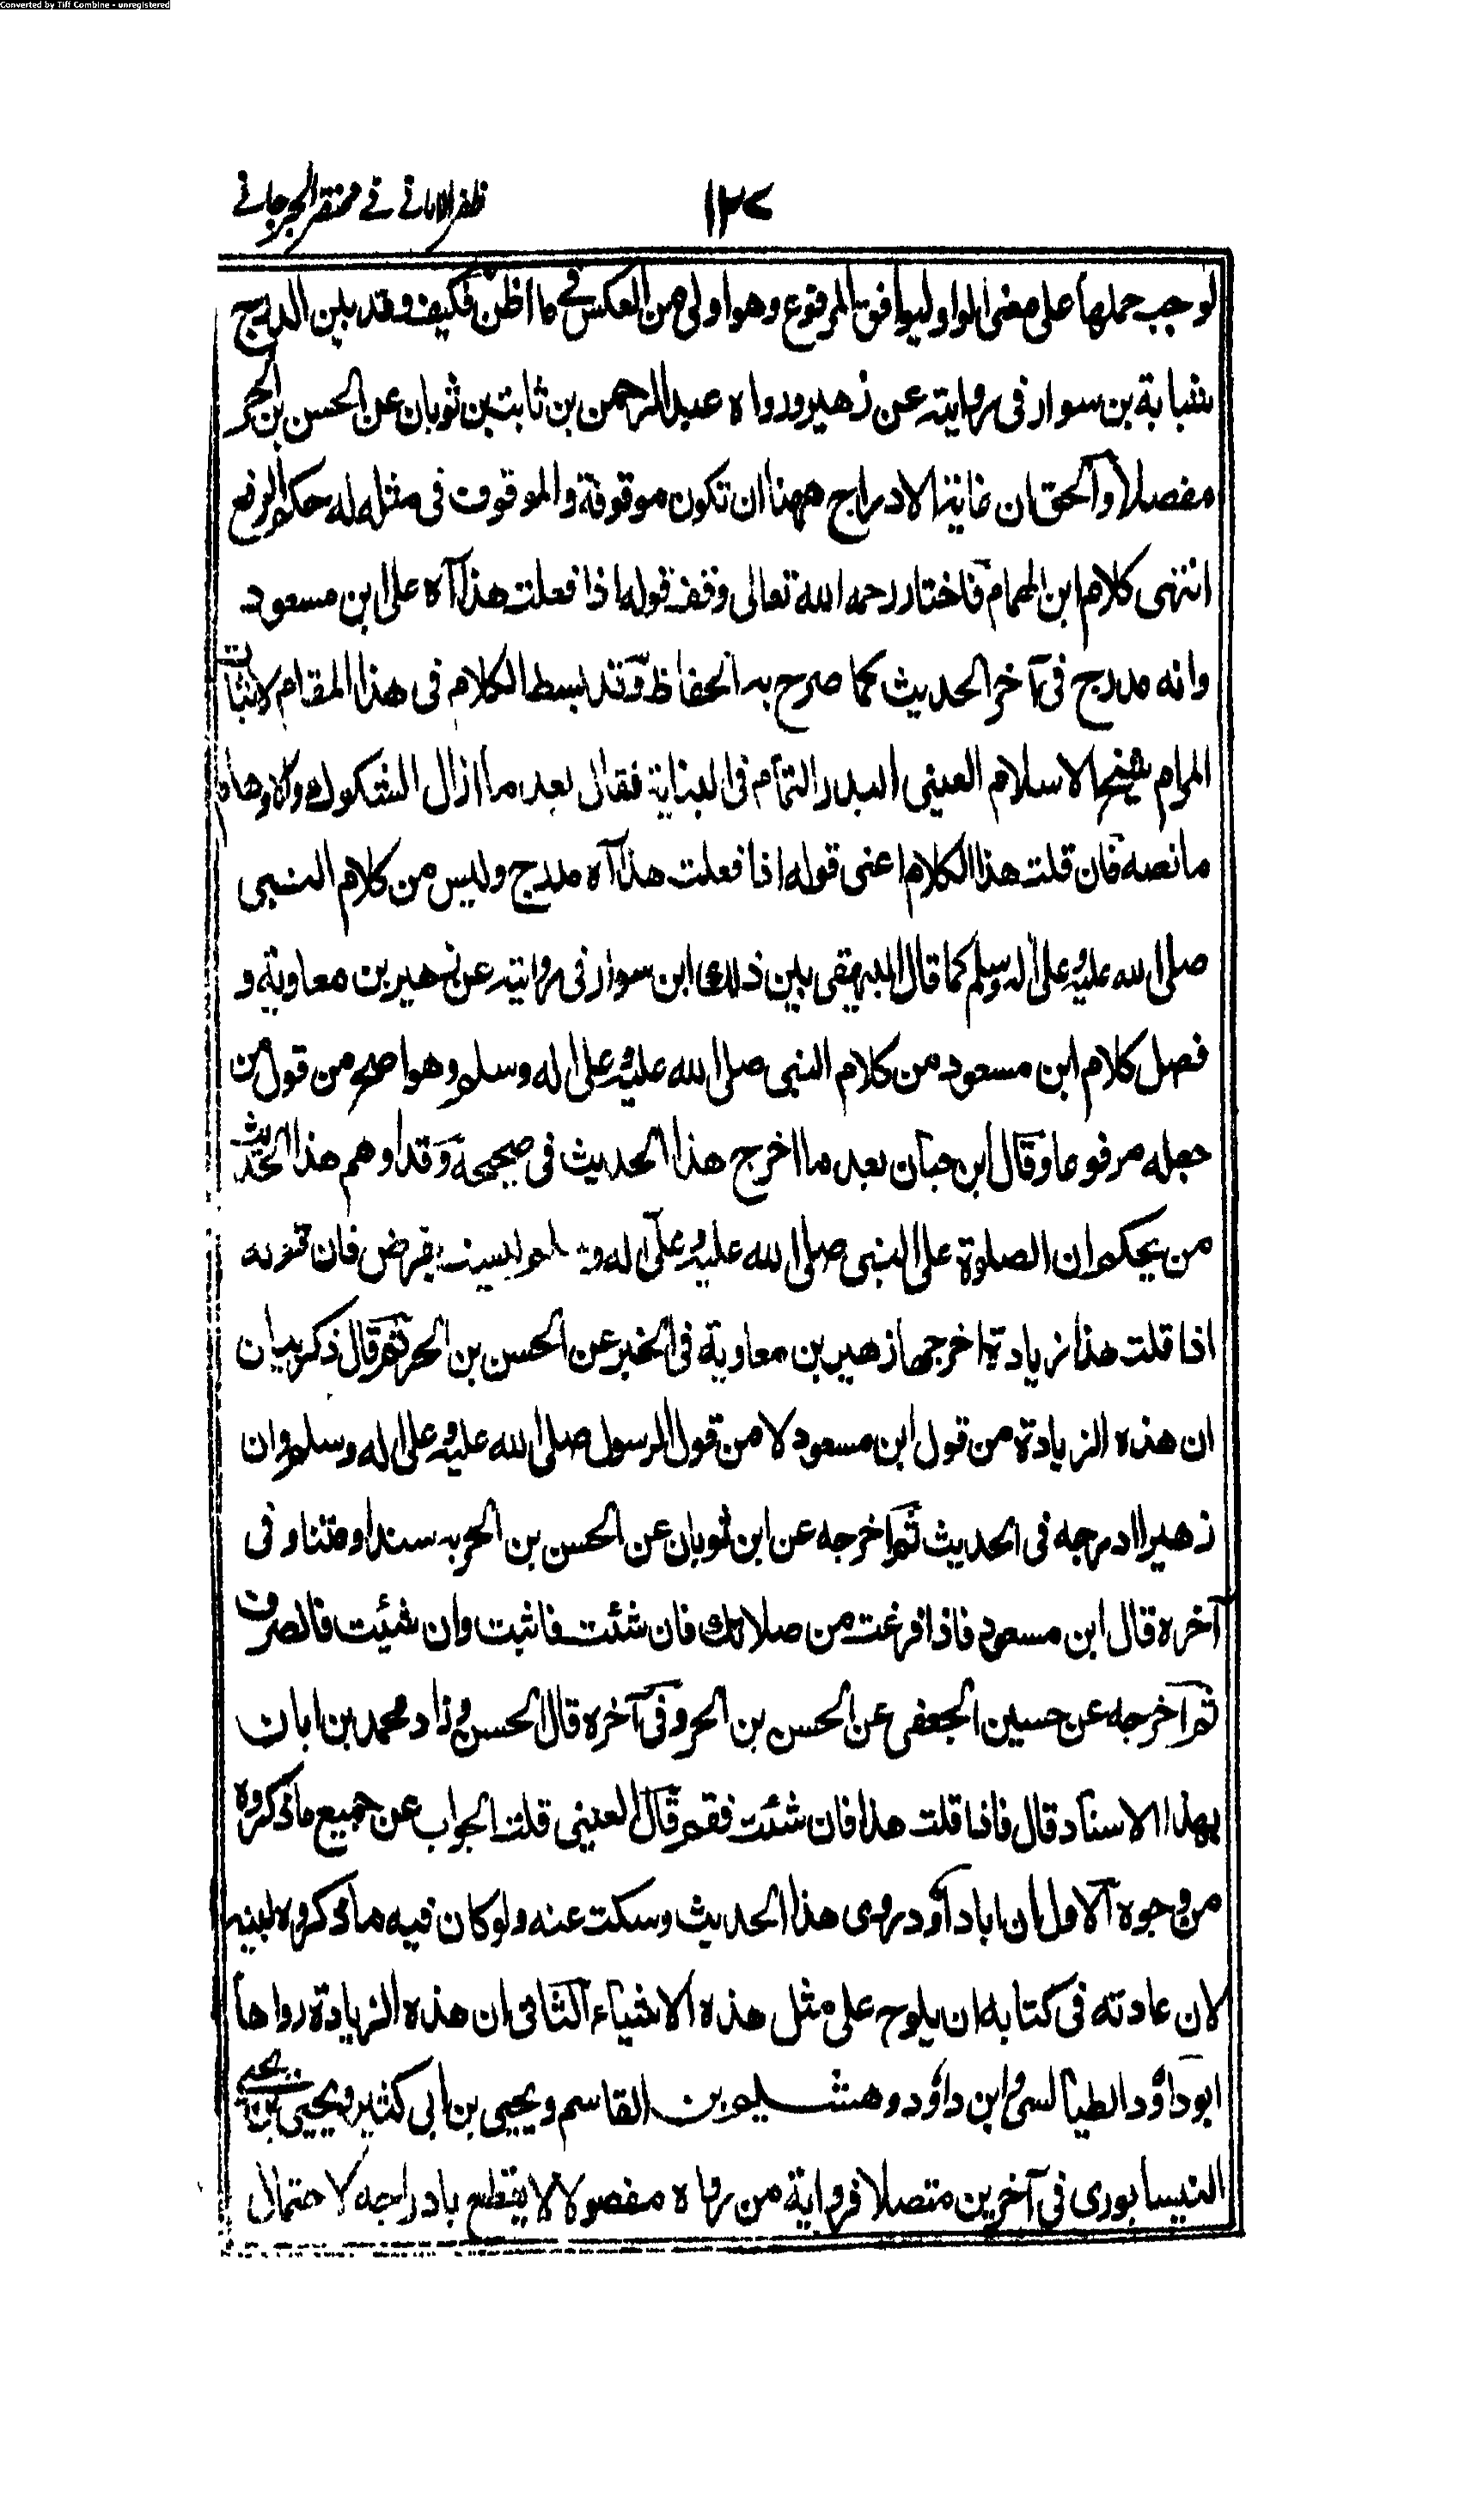 Converted by Tiff Combine - unregistered
١٣٧ ظفر الامانی فی مختصر الجرجانی
لوجب حملها علی معنی الواو لیوافق المرفوع وهو اولی من العکس فی ما اظن فکیف وقد بین الدرج
شبابة بن سوار فی روایته عن زهیر ورواه عبد الرحمن بن ثابت بن ثوبان عن الحسن بن الحر
مفصلا والحق ان غایة الادراج ههنا ان تکون موقوفة والموقوف فی مثله له حکم الرفع
انتهی کلام ابن الهمام فاختار رحمه الله تعالی وقف قوله اذا فعلت هذا آه علی ابن مسعود
وانه مدرج فی آخر الحدیث کما صرح به الحفاظ وقد بسط الکلام فی هذا المقام لاثبات
المرام شیخ الاسلام العینی البدر التمام فی البنایة فقال بعد ما ازال الشکوک والاوهام
ما نصه فان قلت هذا الکلام اعنی قوله اذا فعلت هذا آه مدرج ولیس من کلام النبی
صلی الله علیه وعلی آله وسلم کما قال البیهقی بین ذلک ابن سوار فی روایته عن زهیر بن معاویة و
فصل کلام ابن مسعود من کلام النبی صلی الله علیه وعلی اله وسلم وهو اصح من قول من
جعله مرفوعا وقال ابن حبان بعد ما اخرج هذا الحدیث فی صحیحه وقد اوهم هذا الحدیث
من یحکم ان الصلوة علی النبی صلی الله علیه وعلی اله وسلم لیست بفرض فان قوله
اذا قلت هذا زیادة اخرجها زهیر بن معاویة فی الخبر عن الحسن بن الحر ثم قال ذکر بیان
ان هذه الزیادة من قول ابن مسعود لا من قول الرسول صلی الله علیه وعلی اله وسلم وان
زهیرا ادرجه فی الحدیث ثم اخرجه عن ابن ثوبان عن الحسن بن الحر به سندا ومتنا وفی
آخره قال ابن مسعود فاذا فرغت من صلاتک فان شئت فاثبت وان شئت فانصرف
ثم اخرجه عن حسین الجعفی عن الحسن بن الحر وفی آخره قال الحسن وزاد محمد بن ابان
بهذا الاسناد قال فاذا قلت هذا فان شئت فقم قال العینی قلت الجواب عن جمیع ما ذکروه
من وجوه الاول ان ابا داود روی هذا الحدیث وسکت عنه ولو کان فیه ما ذکروه لبینه
لان عادته فی کتابه ان یلوح علی مثل هذه الاشیاء الثانی ان هذه الزیادة رواها
ابو داؤد الطیالسی وابن داؤد وهشیم بن القاسم ویحیی بن ابی کثیر ویحیی بن یحیی
النیسابوری فی آخرین متصلا فروایة من رواه مفصولا لا یقطع بادراجه لاحتمال